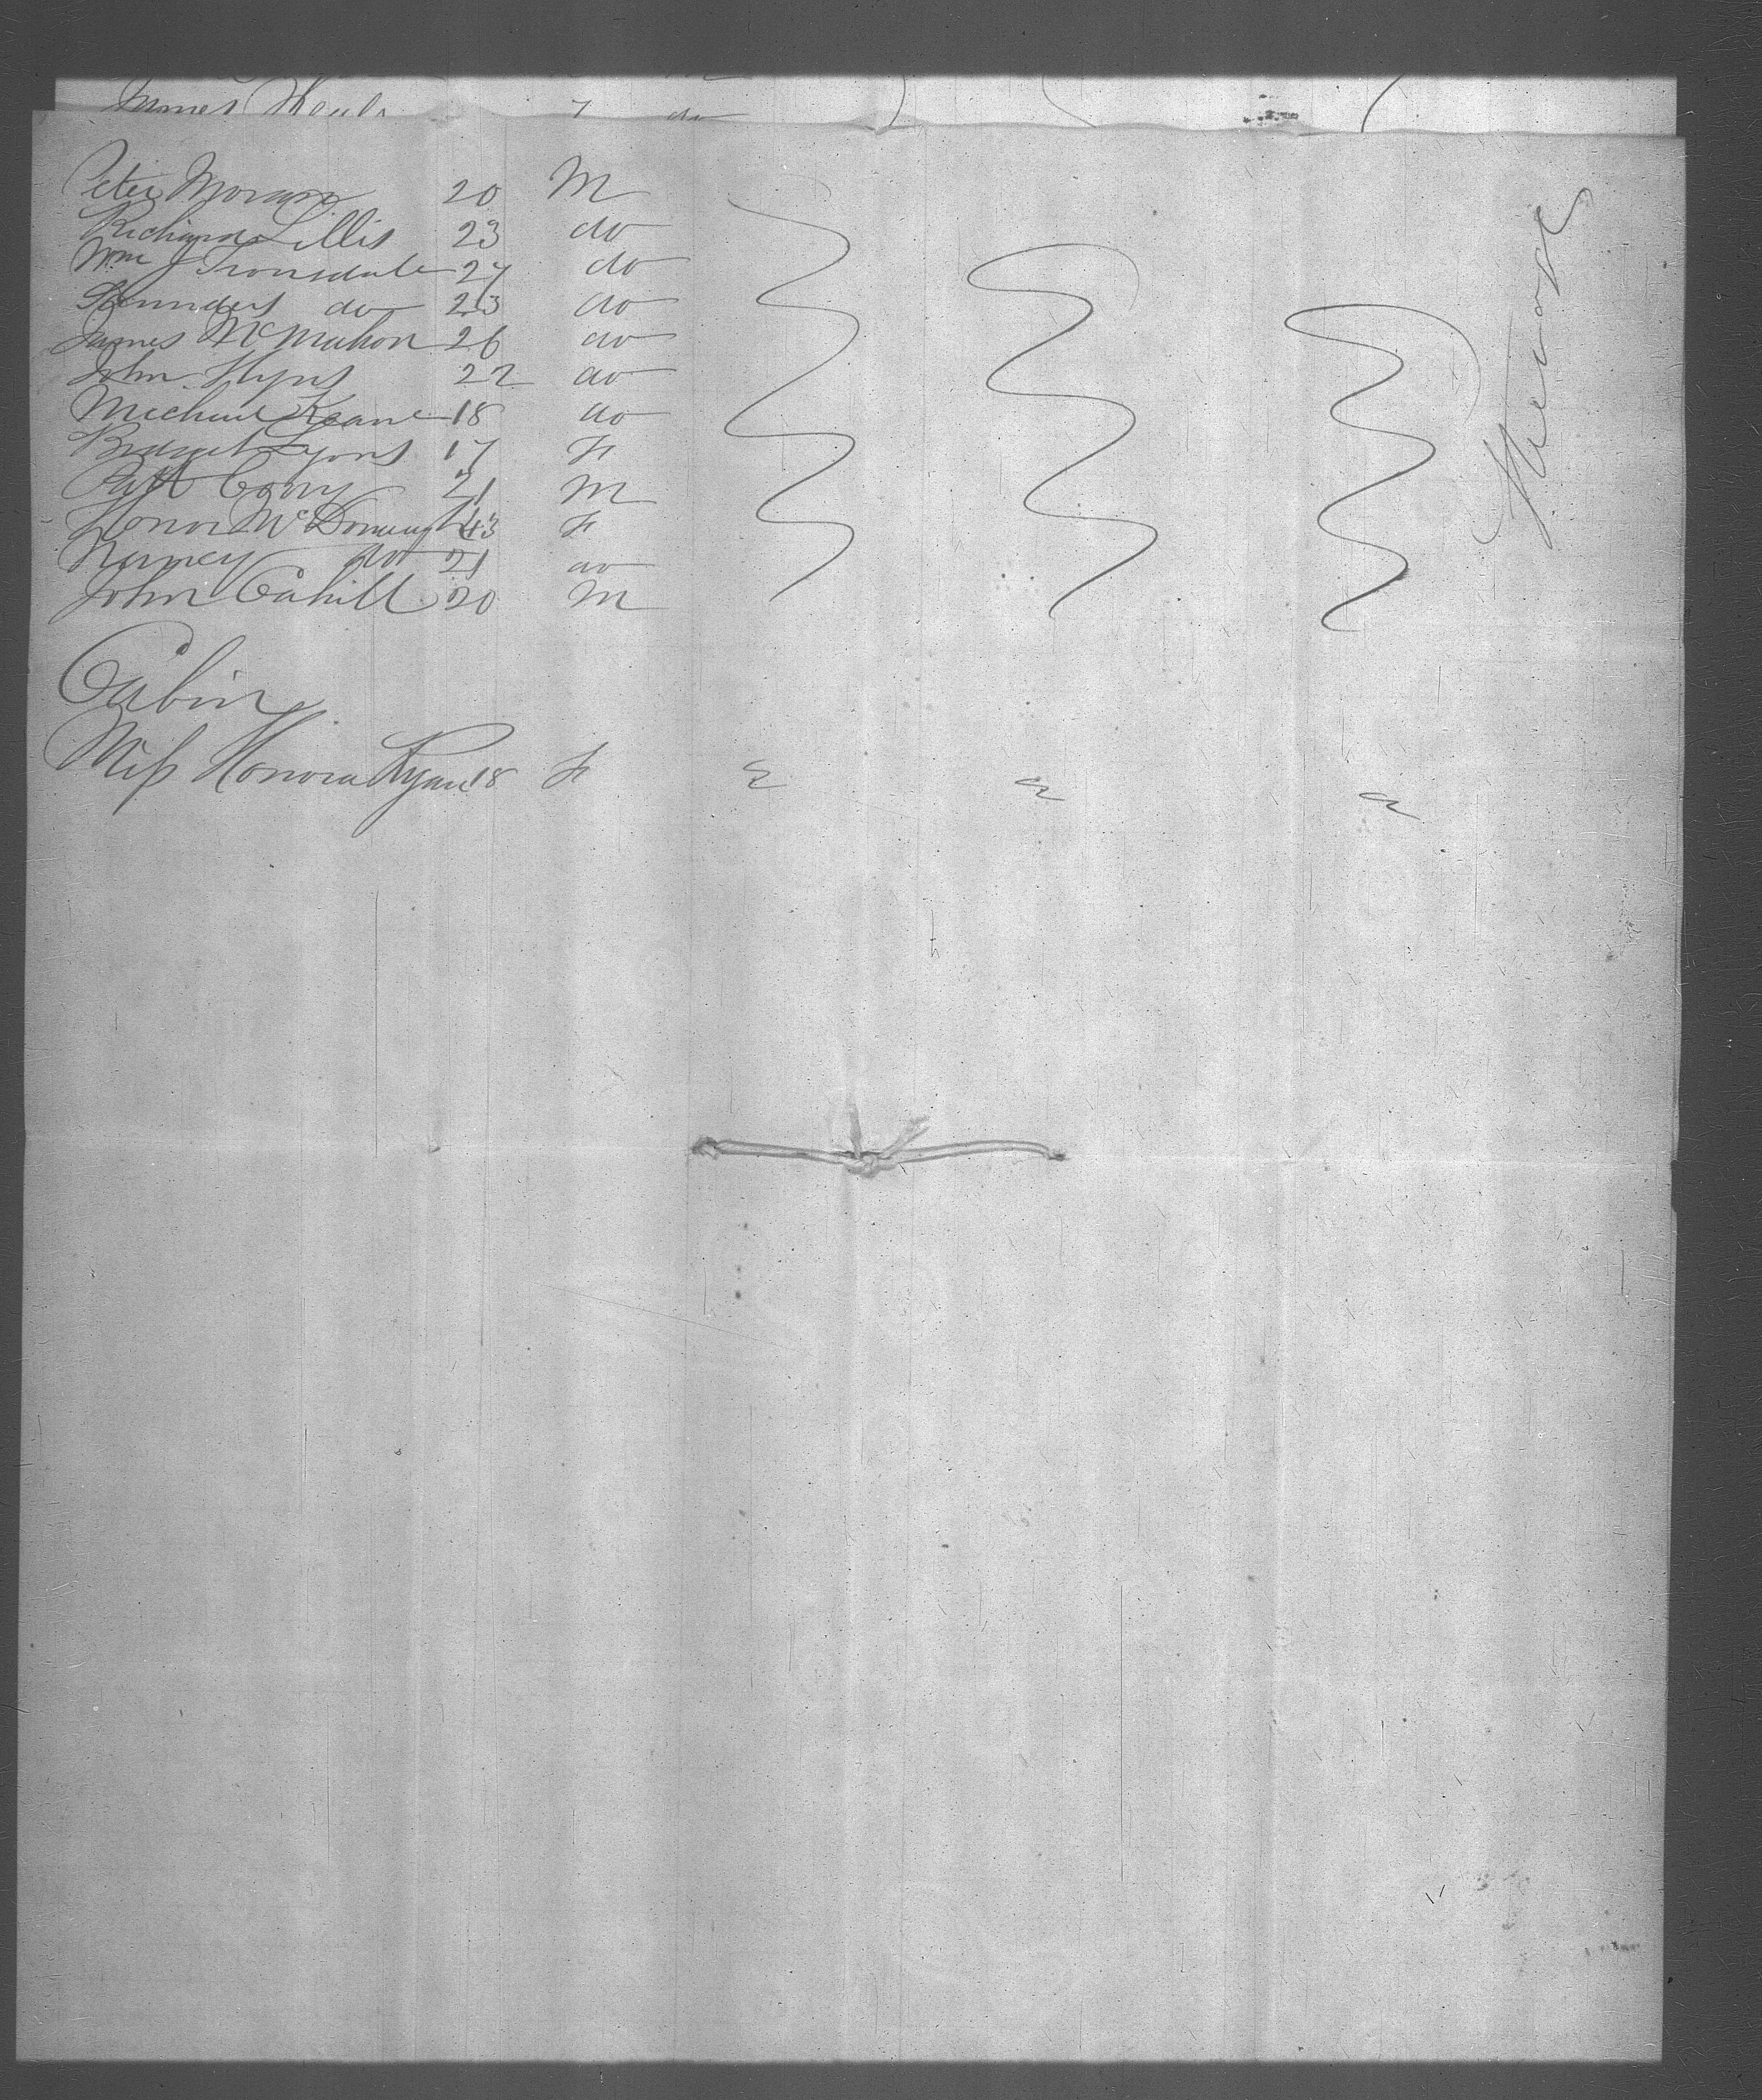 James
Peter Moran 20 M
Richard Lillis 23 do
Wm J Tronsdale 27 do
Saunders do 23 do
James McMahon 26 do
John Hyns 22 do
Michael Keane 18 do
Bridget Lyons 17 F
Patt Corry 21 M
Honor McDonough 43 F
Nancy do 21 do
John Cahill 20 M
Cabin
Miss Honora Ryan 18 F
Steerage